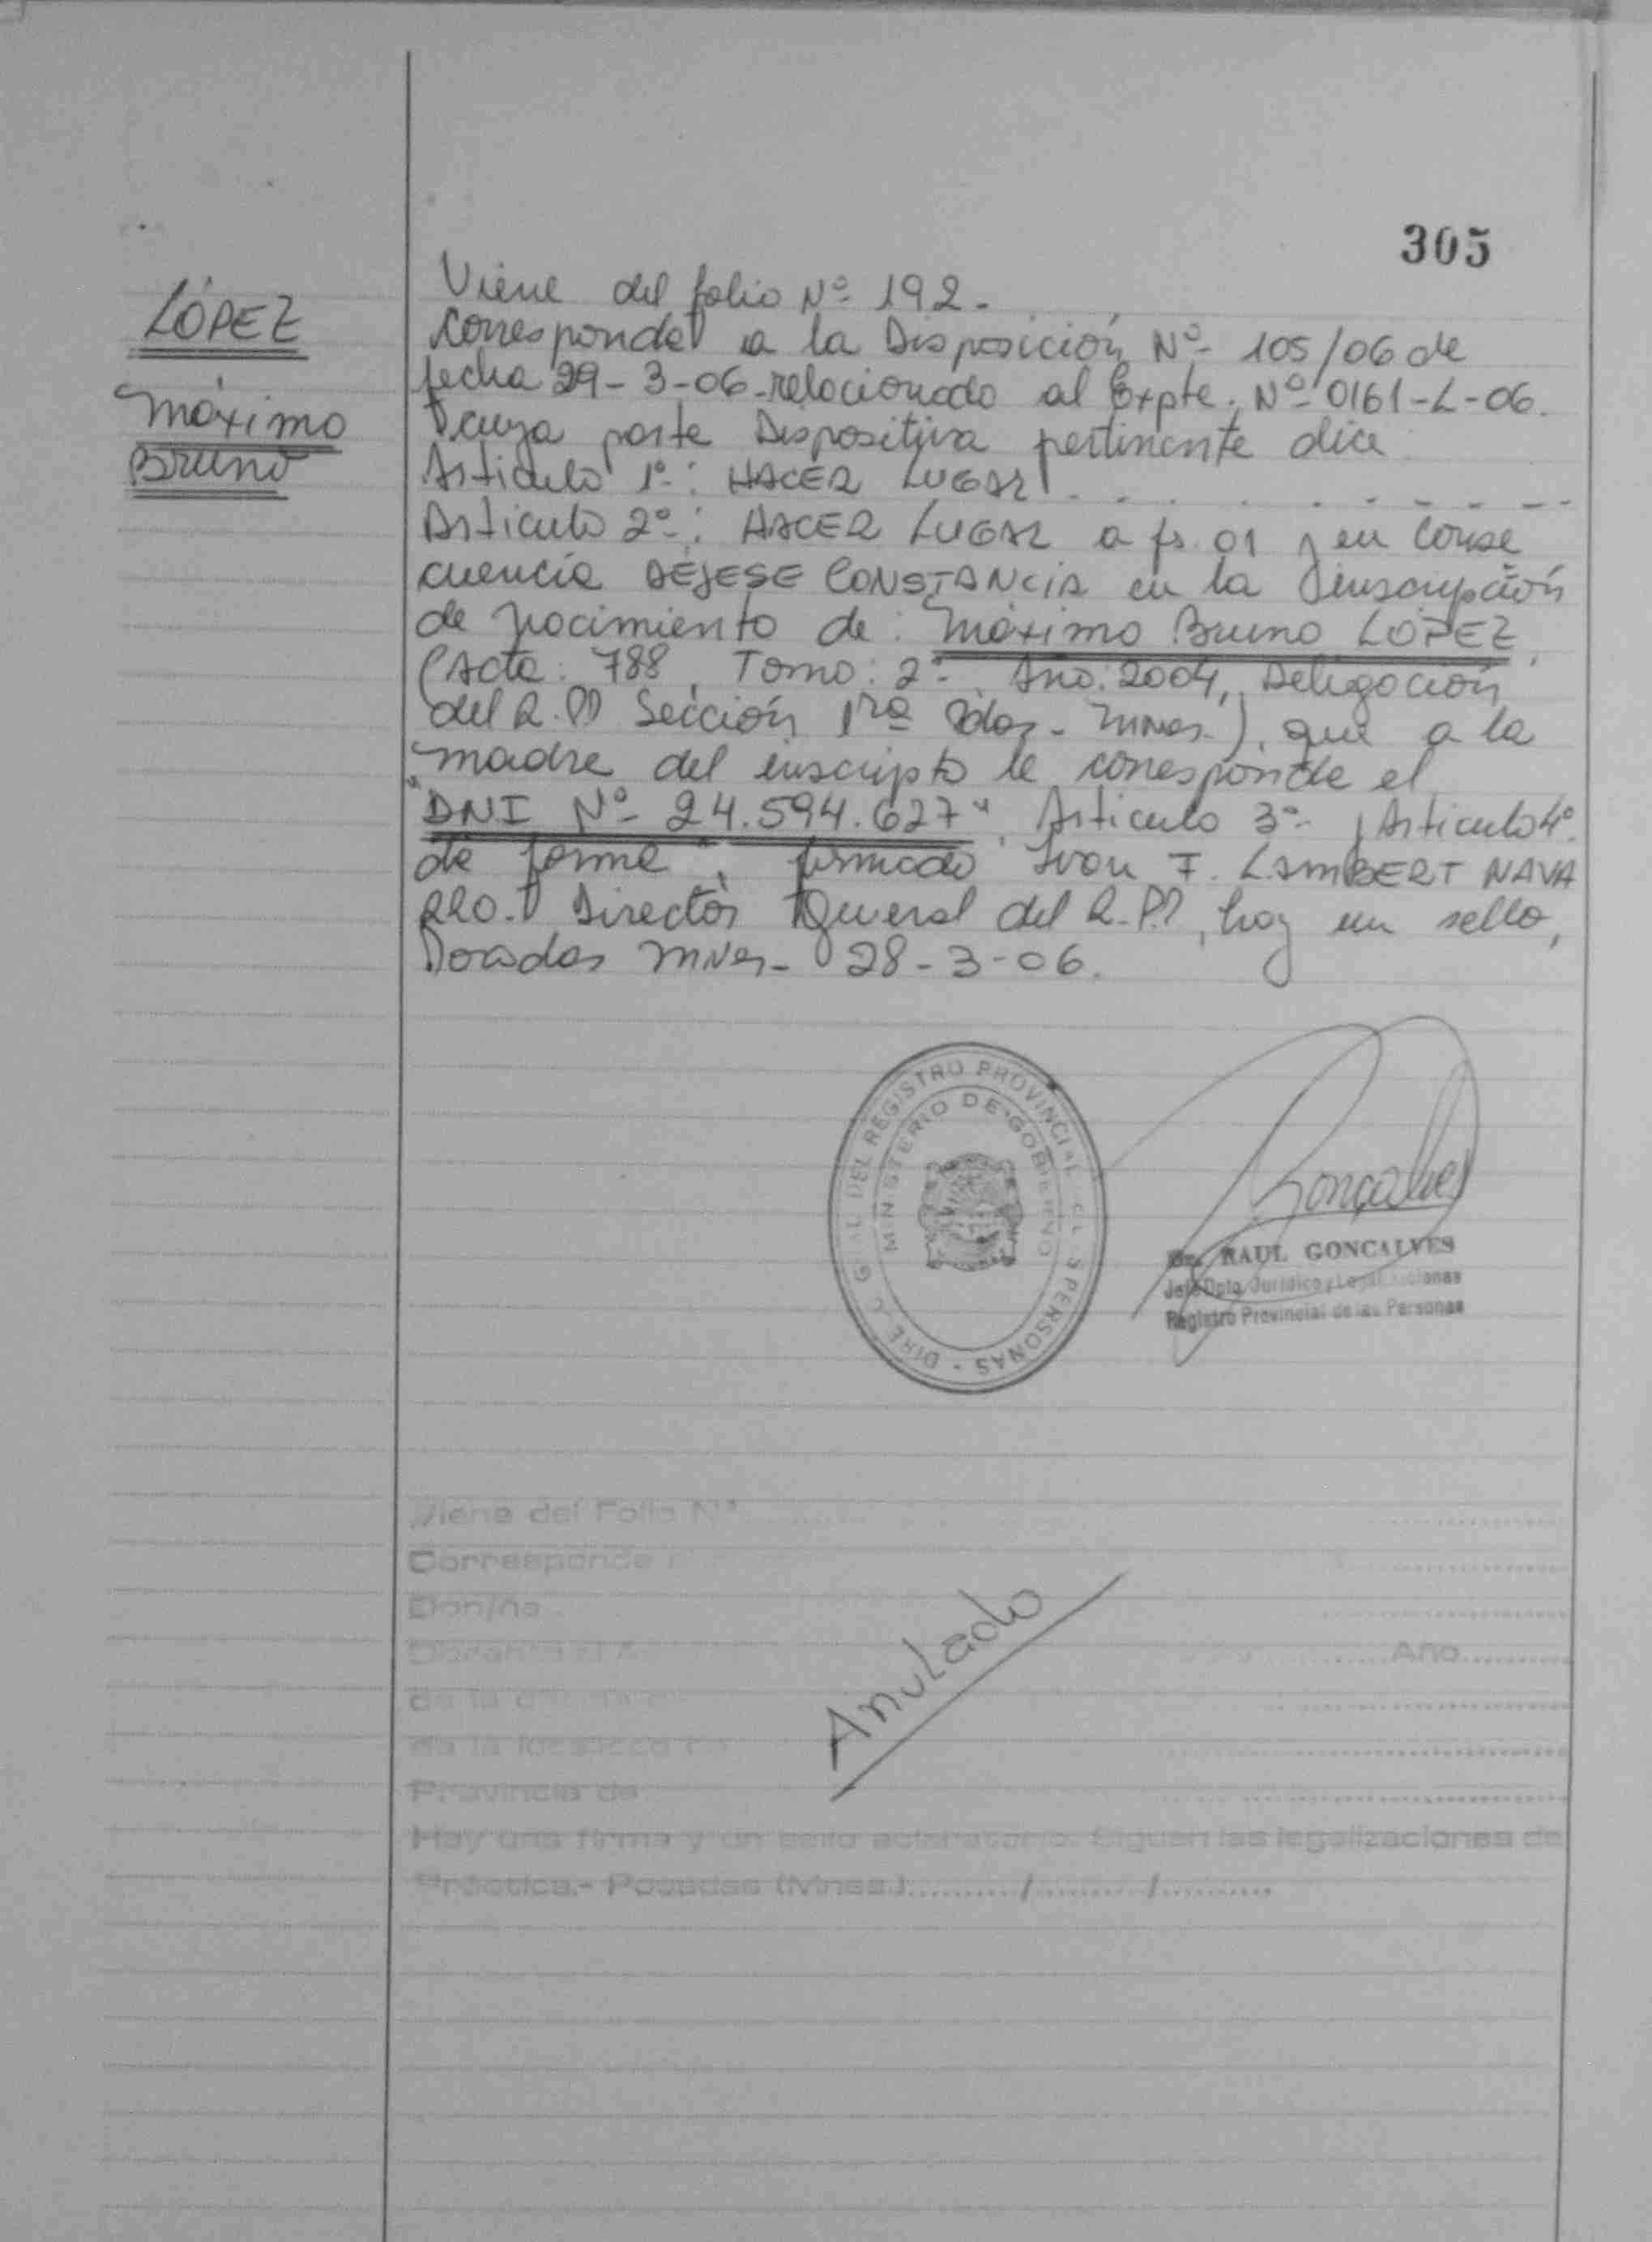 305
LÓPEZ
Máximo
Bruno
Viene del folio Nº 192.
Corresponde a la Disposición Nº 105/06 de
fecha 29-3-06 relacionado al Expte. Nº 0161-L-06.
cuya parte Dispositiva pertinente dice
Artículo 1º: HACER LUGAR . . . . . . . .
Artículo 2º: HACER LUGAR a fs. 01 y en conse
cuencia DÉJESE CONSTANCIA en la inscripción
de nacimiento de: Máximo Bruno LÓPEZ,
(Acta: 788, Tomo: 2º, Año: 2004, Delegación
del R.P.P Sección 1ra Pdas - Mnes.), que a la
madre del inscripto le corresponde el
"DNI Nº 24.594.627". Artículo 3º y Artículo 4º
de forma", firmado Ivon F. LAMBERT NAVA
RRO. Director General del R.P.P, hay un sello,
Posadas Mnes - 28-3-06.
DEL REGISTRO PROVINCIAL PERSONAS - DIREC
MINISTERIO DE GOBIERNO
Gonçalves
Dr. RAUL GONCALVES
Jefe Dpto. Jurídico y
Registro Provincial de las Personas
Viene del Folio Nº
Corresponde a
Don/ña
Año
de la
de la localidad de
Provincia de
Hay una firma y un sello aclaratorio. Siguen las legalizaciones de
Práctica.- Posadas (Mnes.)........../........../..........
Anulado